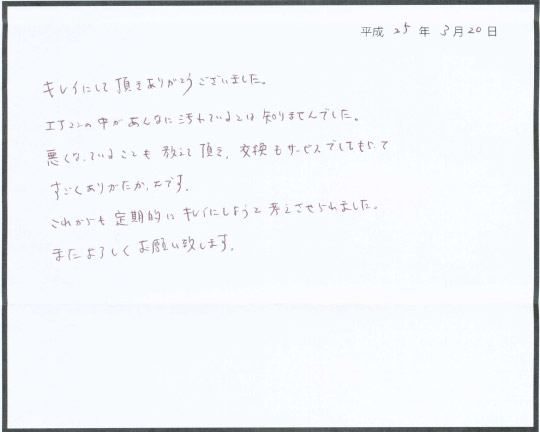 平成 25 年 3 月 20 日
キレイにして頂きありがとうございました。
エアコンの中があんなに汚れているとは知りませんでした。
悪くなっていることも教えて頂き、交換もサービスでしてもらって
すごくありがたかったです。
これからも定期的にキレイにしようと考えさせられました。
またよろしくお願い致します。